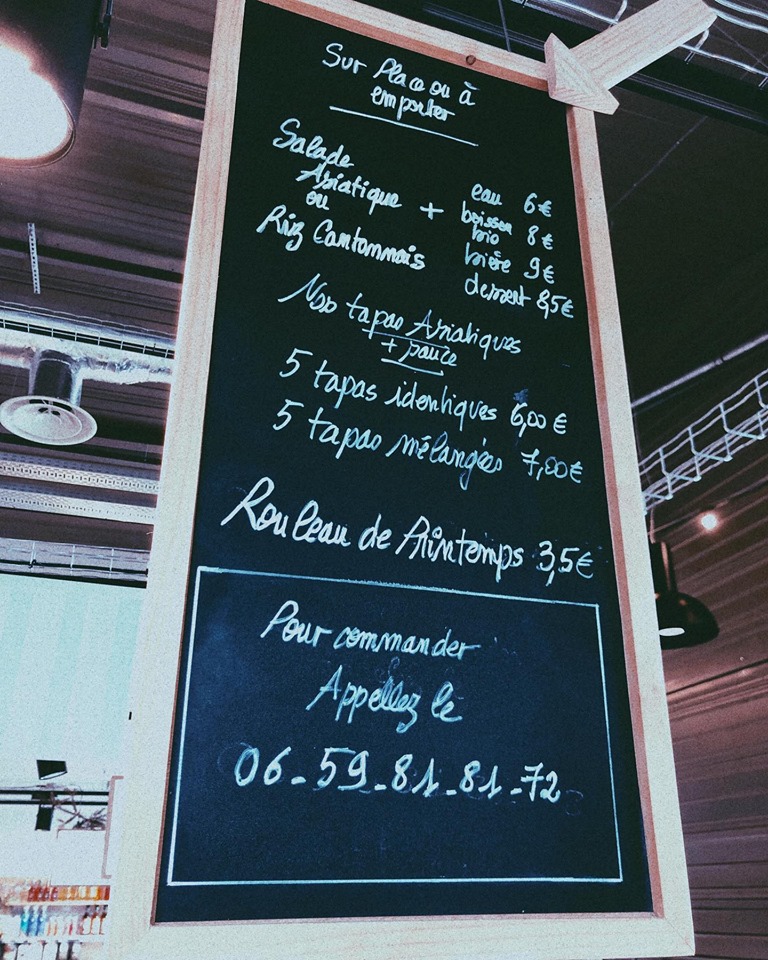 Sur Place ou à
emporter
Salade
Asiatique
ou
Riz Cantonnais
+
eau 6€
boisson
bio 8€
bière 9€
dessert 8,5€
Nos tapas Asiatiques
+ sauce
5 tapas identiques 6,00€
5 tapas mélangées 7,00€
Rouleau de Printemps 3,5€
Pour commander
Appellez le
06_59_81_81_72